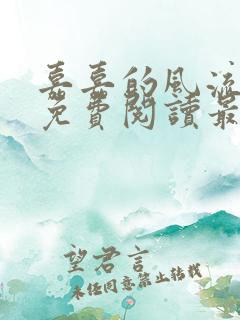 嘉喜的風流
免費閱讀最
望君言
未任同意禁止转载